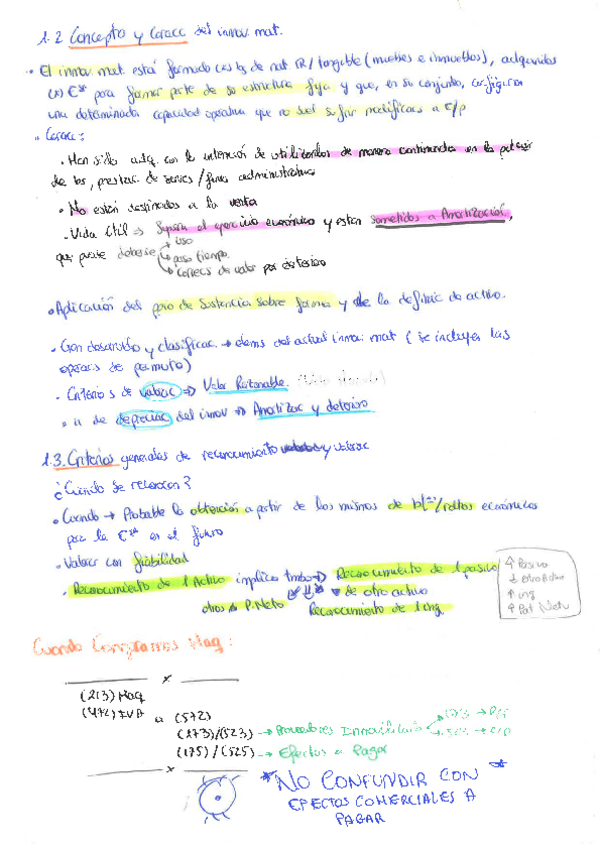 1.2 Concepto y Caracc del innov. mat.
• El innov. mat. está formado x los bs de nat. R/ tangible (muebles e inmuebles), adquiridos
x la Eª para formar parte de su estructura fija y que, en su conjunto, configuran
una determinada capacidad operativa que no suel sufrir modificacs a c/p
• Caracs:
• Han sido adq. con la intención de utilizarlos de manera continuada en la
de bs, prestac. de servics / fines administrativos
• No están destinados a la venta
- Vida Útil => Supera el ejercicio económico y están sometidos a Amortización,
que puede deberse uso
paso tiempo
correcs de valor por deterioro
• Aplicación del de sustancia sobre forma y de la definic de activo.
• Gen desarrollo y clasificac. → elems del actual innov. mat ( se incluyen las
operacs de permuta)
- Criterios de valorac => Valor Razonable.
• " de depreciac del innov => Amortizac y deterioro
1.3. Criterios generales de reconocimiento y valorac
¿Cuándo se reconocen?
• Cuando → Probable la obtención a partir de los mismos de económicos
para la Eª en el futuro
• Valorac con fiabilidad
• Reconocimiento de 1 Activo implica => Reconocimiento de 1 pasivo
de otro activo
P. Neto Reconocimiento de 1 ing
↑ Pasivo
↓ otro Activo
↑ ing
↑ Pat Neto
Cuando Compramos Maq:
x
(213) Maq
(472) IVA a (572)
(173)/(523) → Proveedores Inmovilizado 173 → L/P
523 → C/P
(175) / (525) → Efectos a Pagar
x
* NO CONFUNDIR CON *
EFECTOS COMERCIALES A
PAGAR